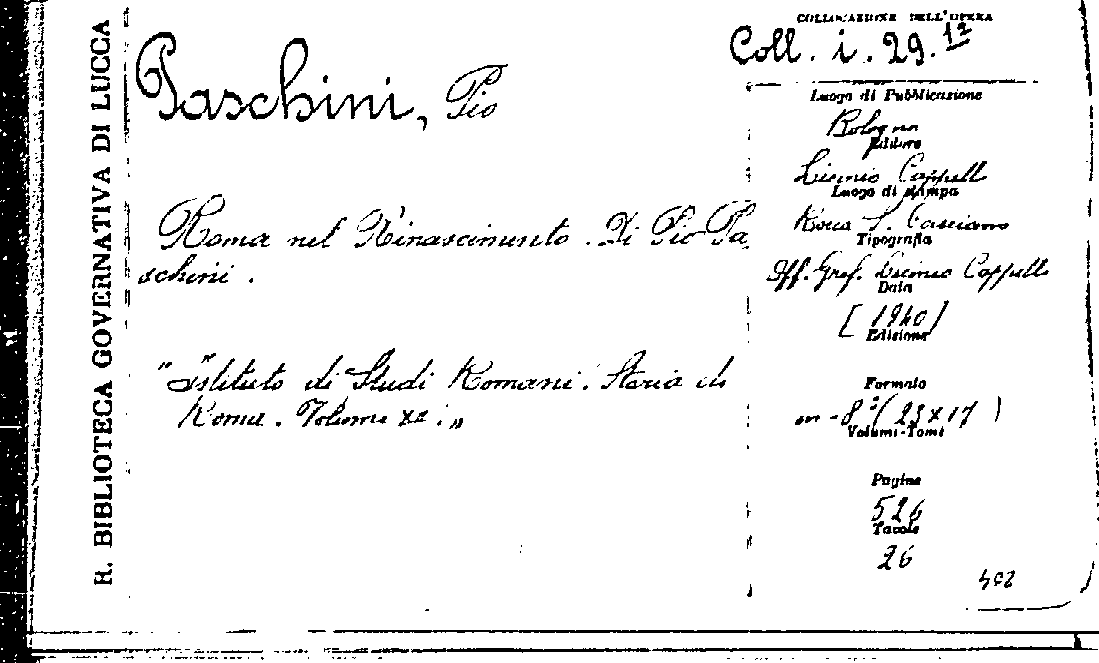 R. BIBLIOTECA GOVERNATIVA DI LUCCA
COLLOCAZIONE DELL'OPERA
Coll. i. 29. 12
Paschini, Pio
Luogo di Pubblicazione
Bologna
Editore
Licinio Cappelli
Luogo di stampa
Rocca S. Casciano
Tipografia
Off. Graf. Licinio Cappelli
Data
[1940]
Edizione
Roma nel Rinascimento. Di Pio Pa
schini.
"Istituto di Studi Romani. Storia di
Roma. Volume XII."
Formato
in-8° (25x17)
Volumi-Tomi
Pagine
526
Tavole
26